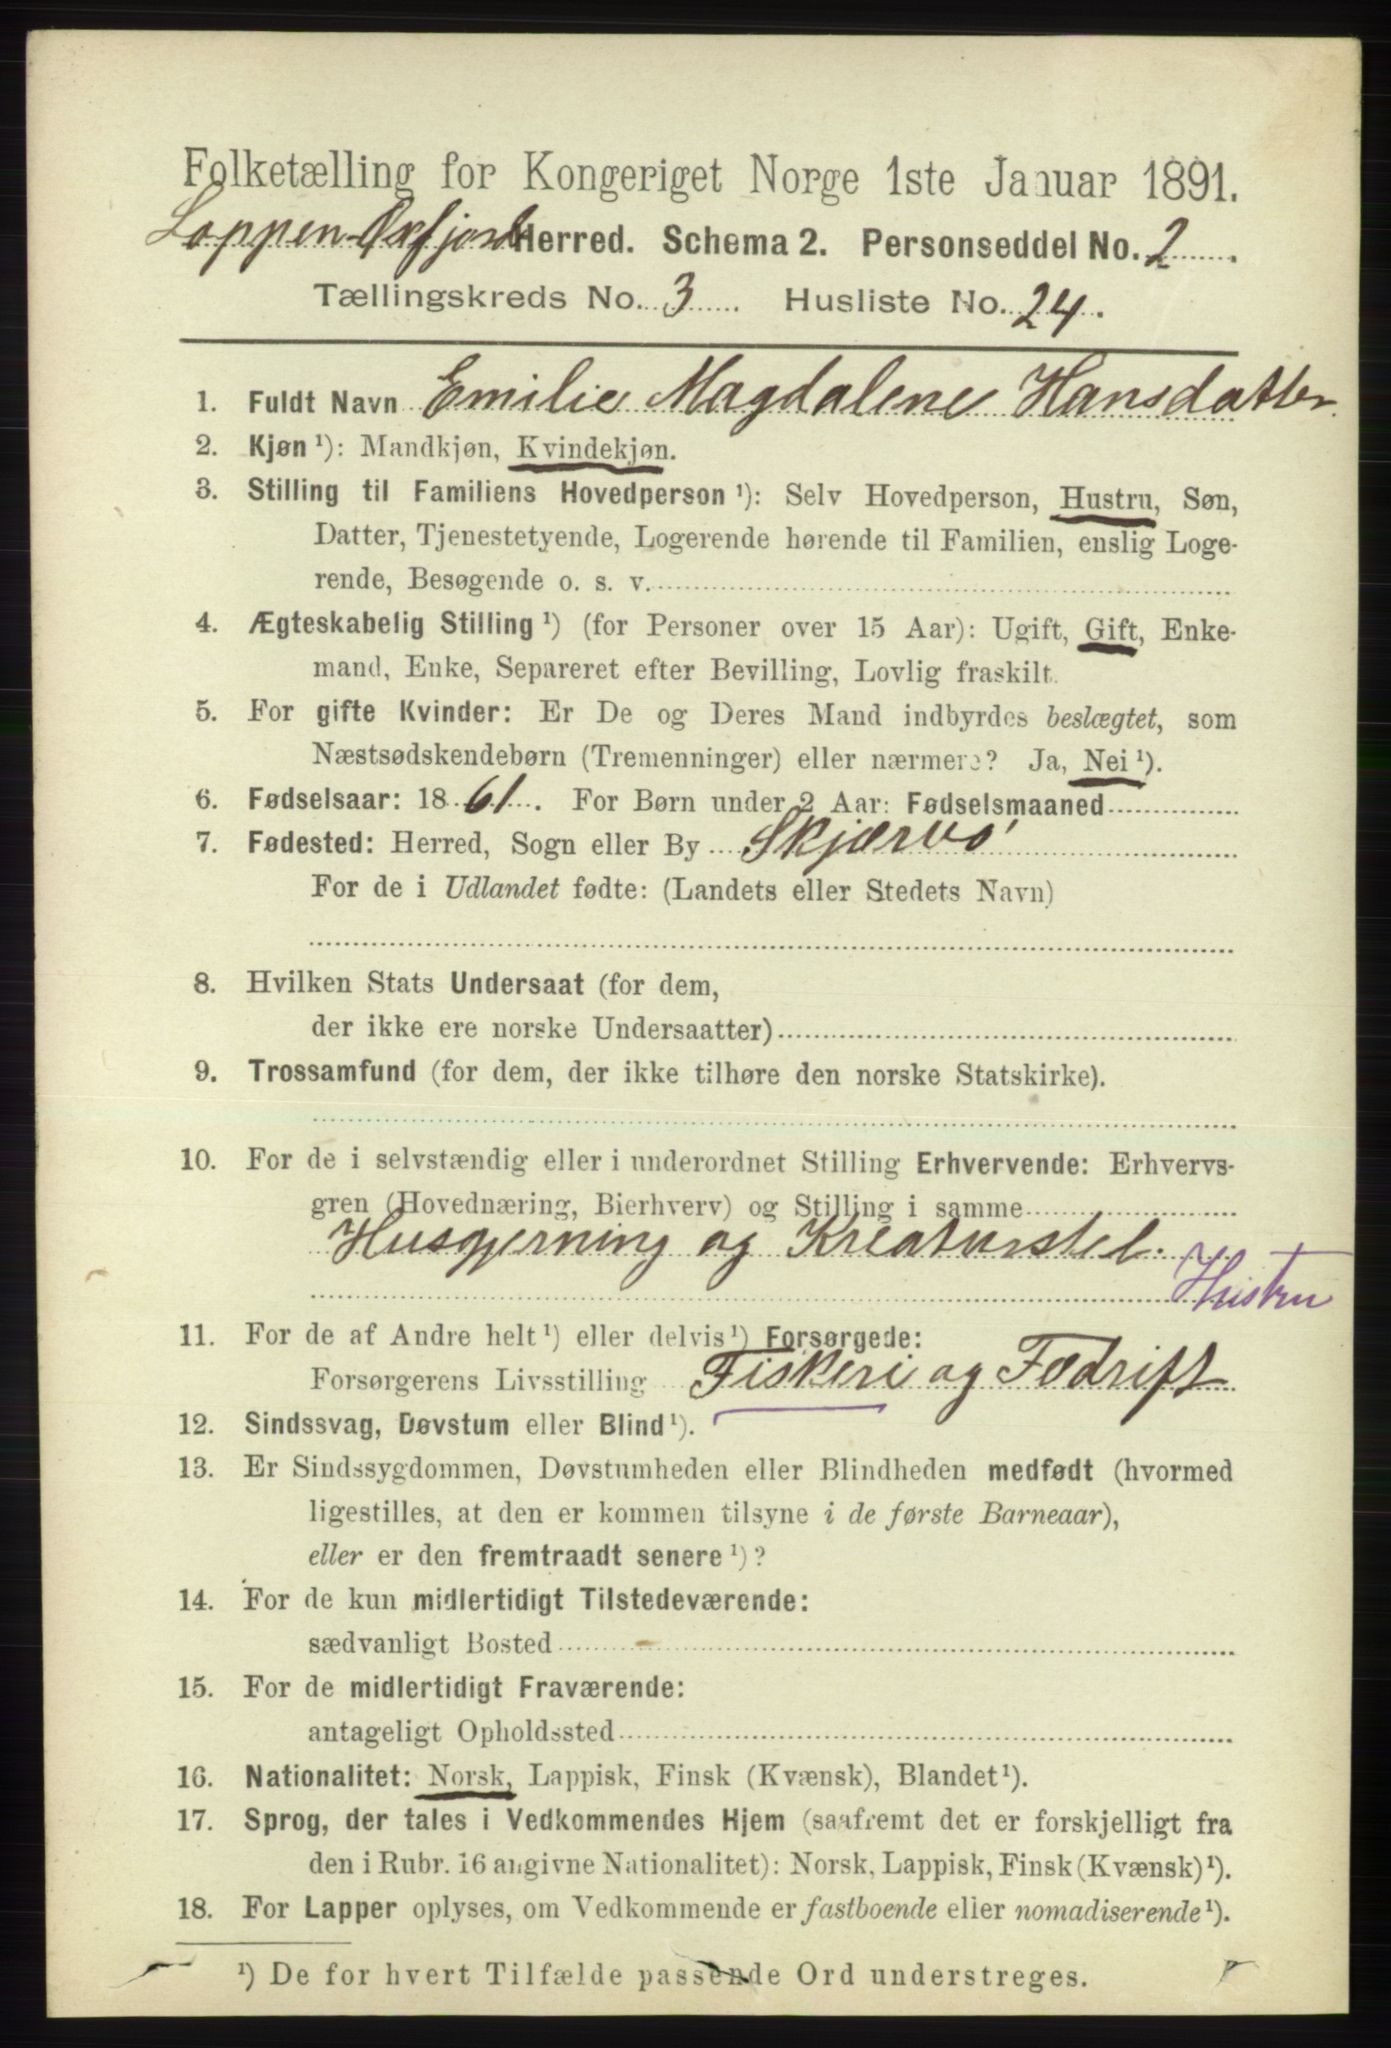 Folketælling for Kongeriget Norge 1ste Januar 1891.
Loppen-Øxfjord Herred. Schema 2. Personseddel No. 2.
Tællingskreds No. 3. Husliste No. 24.
1. Fuldt Navn Emilie Magdalene Hansdatter
2. Kjøn ¹): Mandkjøn, Kvindekjøn.
3. Stilling til Familiens Hovedperson ¹): Selv Hovedperson, Hustru, Søn,
Datter, Tjenestetyende, Logerende hørende til Familien, enslig Loge-
rende, Besøgende o. s. v.
4. Ægteskabelig Stilling ¹) (for Personer over 15 Aar): Ugift, Gift, Enke-
mand, Enke, Separeret efter Bevilling, Lovlig fraskilt.
5. For gifte Kvinder: Er De og Deres Mand indbyrdes beslægtet, som
Næstsødskendebørn (Tremenninger) eller nærmere? Ja, Nei ¹).
6. Fødselsaar: 1861. For Børn under 2 Aar: Fødselsmaaned
7. Fødested: Herred, Sogn eller By Skjærvø
For de i Udlandet fødte: (Landets eller Stedets Navn)
8. Hvilken Stats Undersaat (for dem,
der ikke ere norske Undersaatter)
9. Trossamfund (for dem, der ikke tilhøre den norske Statskirke).
10. For de i selvstændig eller i underordnet Stilling Erhvervende: Erhvervs-
gren (Hovednæring, Bierhverv) og Stilling i samme
Husgjerning og Kreaturstel.
Hustru
11. For de af Andre helt ¹) eller delvis ¹) Forsørgede:
Forsørgerens Livsstilling Fiskeri og Fædrift
12. Sindssvag, Døvstum eller Blind ¹).
13. Er Sindssygdommen, Døvstumheden eller Blindheden medfødt (hvormed
ligestilles, at den er kommen tilsyne i de første Barneaar),
eller er den fremtraadt senere ¹)?
14. For de kun midlertidigt Tilstedeværende:
sædvanligt Bosted
15. For de midlertidigt Fraværende:
antageligt Opholdssted
16. Nationalitet: Norsk, Lappisk, Finsk (Kvænsk), Blandet ¹).
17. Sprog, der tales i Vedkommendes Hjem (saafremt det er forskjelligt fra
den i Rubr. 16 angivne Nationalitet): Norsk, Lappisk, Finsk (Kvænsk) ¹).
18. For Lapper oplyses, om Vedkommende er fastboende eller nomadiserende ¹).
¹) De for hvert Tilfælde passende Ord understreges.